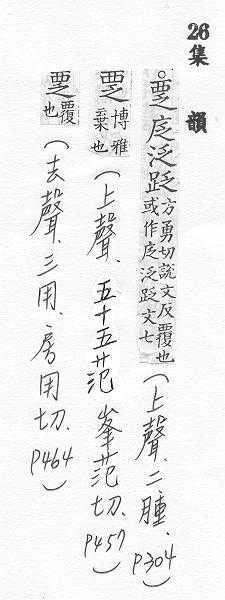 26集韻
○覂庈泛𨀤方勇切說文反覆也或作庈泛𨀤文七（上聲、二腫、P304）
覂博雅棄也（上聲、五十五范峯范切、P457）
覂覆也（去聲、三用、房用切、P464）